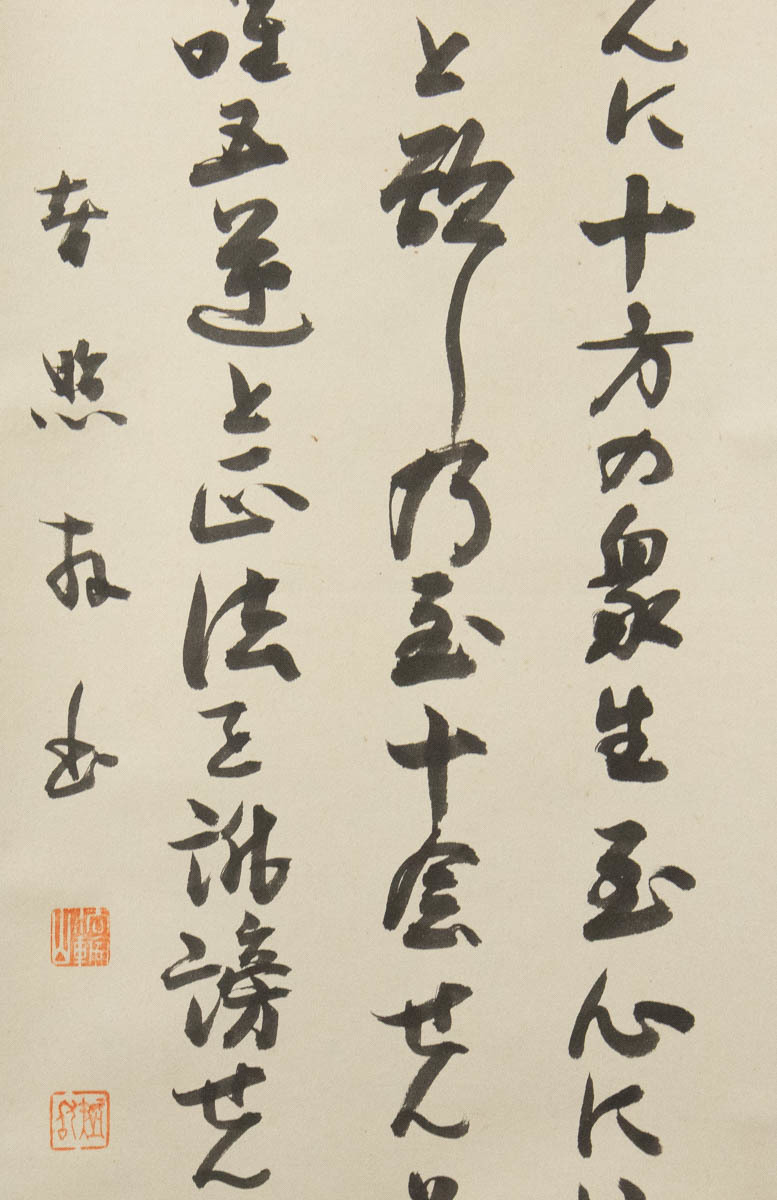 んに十方の衆生至心に
と欲し乃至十念せん
唯五逆と正法を誹謗せん
春照敬書